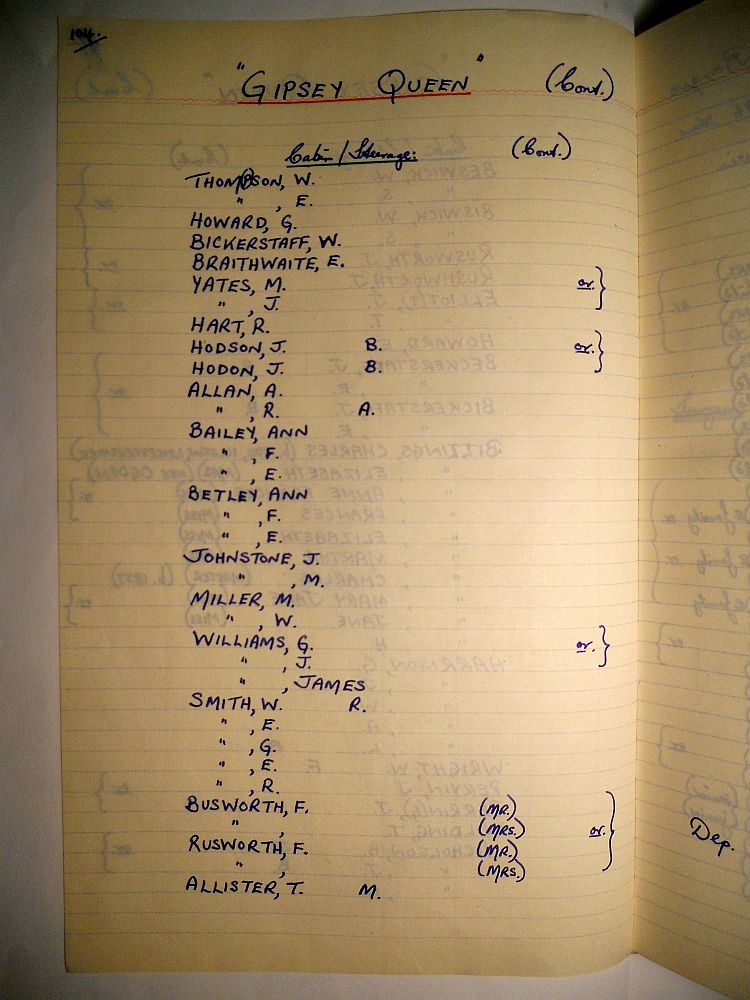 104.
"GIPSEY QUEEN" (Cont.)
Cabin/Steerage: (Cont.)
THOMPSON, W.
" , E.
HOWARD, G.
BICKERSTAFF, W.
BRAITHWAITE, E.
YATES, M. or. }
" , J.
HART, R.
HODSON, J. B. or. }
HODON, J. B.
ALLAN, A.
" , R. A.
BAILEY, ANN
" , F.
" , E.
BETLEY, ANN
" , F.
" , E.
JOHNSTONE, J.
" , M.
MILLER, M.
" , W.
WILLIAMS, G. or. }
" , J.
" , JAMES
SMITH, W. R.
" , E.
" , G.
" , E.
" , R.
BUSWORTH, F. (MR.)
" , (MRS.) or. }
RUSWORTH, F. (MR.)
" , (MRS.)
ALLISTER, T. M.
Dep.